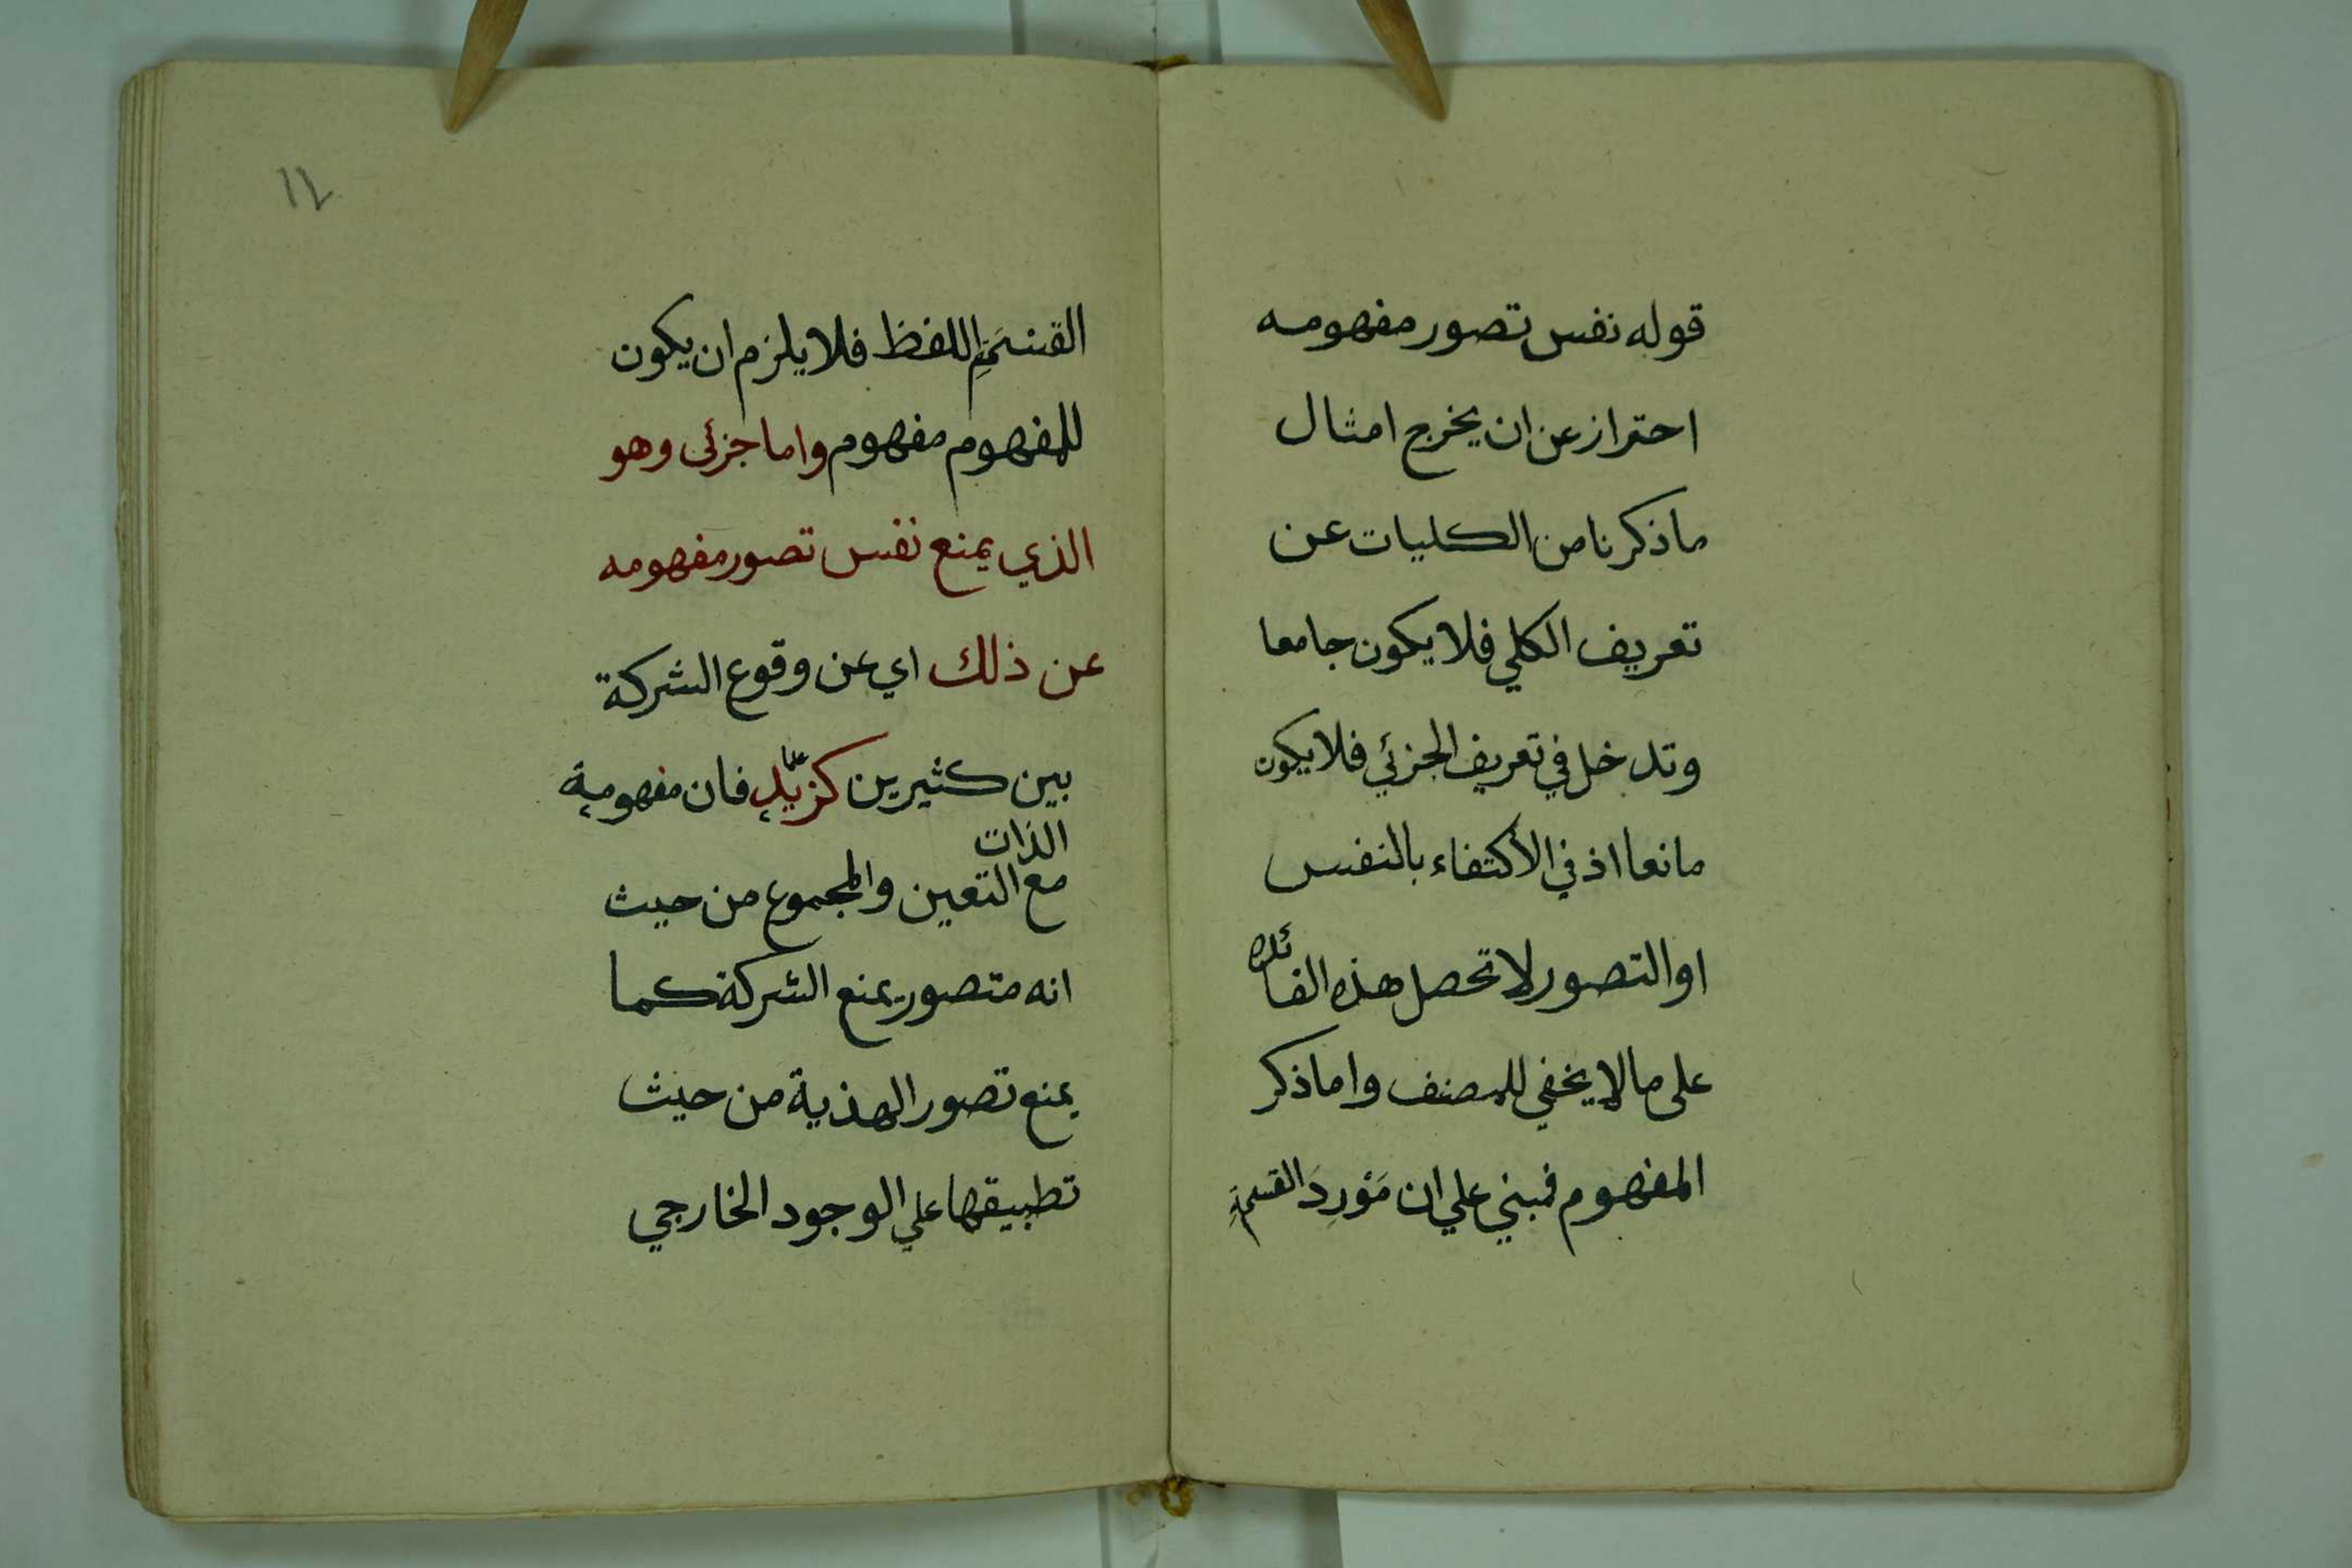 قوله نفس تصور مفهومه
احتراز عن ان يخرج امثال
ما ذكرنا من الكليات عن
تعريف الكلي فلا يكون جامعا
وتدخل في تعريف الجزئي فلا يكون
مانعا اذ في الاكتفاء بالنفس
او التصور لا تحصل هذه الفائده
على ما لا يخفي للمصنف واما ذكر
المفهوم فمبني علي ان مَوْرِدَ القسمَةِ
١٢
القسمَةِ اللفظ فلا يلزم ان يكون
للمفهوم مفهوم واما جزئى وهو
الذي يمنع نفس تصور مفهومه
عن ذلك اي عن وقوع الشركة
بين كثيرين كزيد فان مفهومه
الذات
مع التعين والمجموع من حيث
انه متصور يمنع الشركة كما
يمنع تصور الهذية من حيث
تطبيقها علي الوجود الخارجي